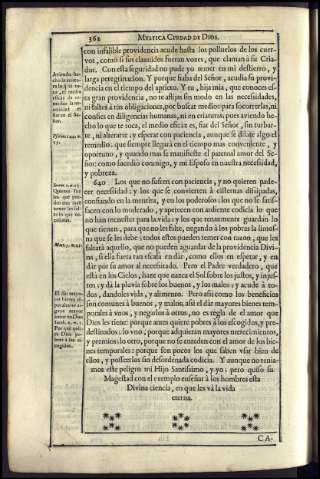 362
MYSTICA CIUDAD DE DIOS.
con infalible providencia acude hasta los polluelos de los cuer-
vos, como si sus clamidos fueran vozes, que claman à su Cria-
dor. Con esta seguridad no pude yo temer en mi destierro, y
larga peregrinacion. Y porque fiaba del Señor, acudia su provi-
dencia en el tiempo del aprieto. Y tu, hija mia, que conoces es-
ta gran providencia, no te aflijas sin modo en las necessidades,
ni faltes à tus obligaciones, por buscar medios para socorrerlas, ni
confies en diligencias humanas, ni en criaturas; pues aviendo he-
cho lo que te toca, el medio eficaz es, fiar del Señor, sin turbar-
te, ni alterarte; y esperar con paciencia, aunque se dilate algo el
remedio: que siempre llegará en el tiempo mas conveniente, y
oportuno, y quando mas se manifieste el paternal amor del Se-
ñor: como sucedió conmigo, y mi Esposo en nuestra necessidad,
y pobreza.
640 Los que no sufren con paciencia, y no quieren pade-
cer necessidad; y los que se convierten à cisternas dissipadas,
confiando en la mentira, y en los poderosos; los que no se satis-
facen con lo moderado, y apetecen con ardiente codicia lo que
no han menester para la vida; y los que tenazmente guardan lo
que tienen, para que no les falte, negando à los pobres la limos-
na que se les debe; todos estos pueden temer con razon, que les
faltará aquello, que no pueden aguardar de la providencia Divi-
na, si ella fuera tan escasa en dár, como ellos en esperar, y en
dár por su amor al necessitado. Pero el Padre verdadero, que
está en los Cielos, haze que nazca el Sol sobre los justos, y injus-
tos; y dá la pluvia sobre los buenos, y los malos; y acude à to-
dos, dandoles vida, y alimento. Pero assi como los beneficios
son comunes à buenos, y malos, assi el dár mayores bienes tem-
porales à vnos, y negarlos à otros, no es regla de el amor que
Dios les tiene: porque antes quiere pobres à los escogidos, y pre-
destinados: lo vno, porque adquieran mayores merecimientos,
y premios: lo otro, porque no se enreden con el amor de los bie-
nes temporales: porque son pocos los que saben vsar bien de
ellos, y posseerlos sin desordenada codicia. Y aunque no tenia-
mos este peligro mi Hijo Santissimo, y yo; pero quiso su
Magestad con el exemplo enseñar à los hombres esta
Divina ciencia, en que les vá la vida
eterna.
CA-